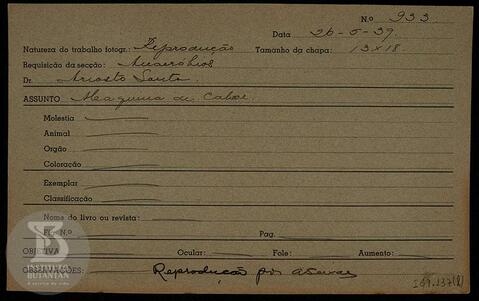 N.o 933
Data 26-5-39
Natureza do trabalho fotogr.: Reprodução Tamanho da chapa: 13x18
Requisição da secção: Anaeróbios
Dr. Ariosto
ASSUNTO Maquina de
Molestia
Animal
Orgão
Coloração
Exemplar
Classificação
Nome do livro ou revista:
Fig. N.o Pag.
OBJETIVA Ocular: Fole: Aumento:
OBSERVAÇÕES: Reprodução por
INSTITUTO
BUTANTAN
A serviço da vida